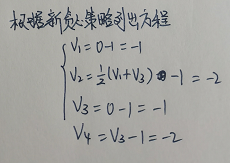 根据新贪心策略列出方程
V₁ = 0 - 1 = -1
V₂ = ½(V₁+V₃) - 1 = -2
V₃ = 0 - 1 = -1
V₄ = V₃ - 1 = -2